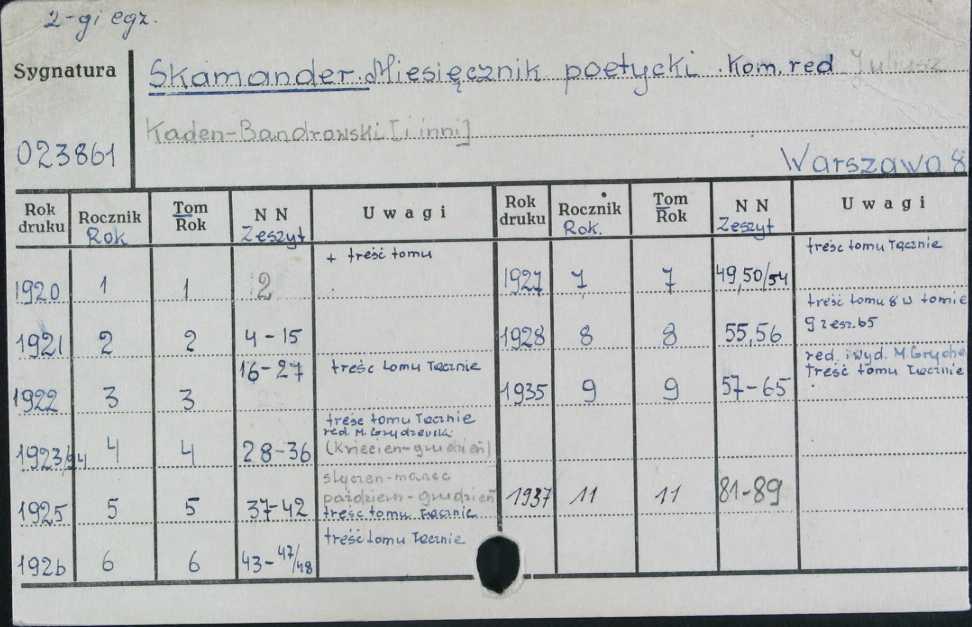 2-gi egz.
Sygnatura
Skamander. Miesięcznik poetycki. Kom. red Juliusz
Kaden-Bandrowski [i inni]
023861
Warszawa 8
Rok druku Rocznik Rok Tom Rok NN Zeszyt Uwagi Rok druku Rocznik Rok. Tom Rok NN Zeszyt Uwagi
1920 1 1 2 + treść tomu 1927 7 7 49,50/54 treść tomu łącznie
1921 2 2 4-15 1928 8 8 55,56 treść tomu 8 w tomie 9 zesz. 65
1922 3 3 16-27 treść tomu łącznie 1935 9 9 57-65 red. i wyd. M. Grydze treść tomu łącznie
1923/24 4 4 28-36 treść tomu łącznie red. M. Grydzewski (Kwiecień-grudzień)
1925 5 5 37-42 styczeń-marzec paździer-grudzień treść tomu łącznie 1937 11 11 81-89
1926 6 6 43-47/48 treść tomu łącznie